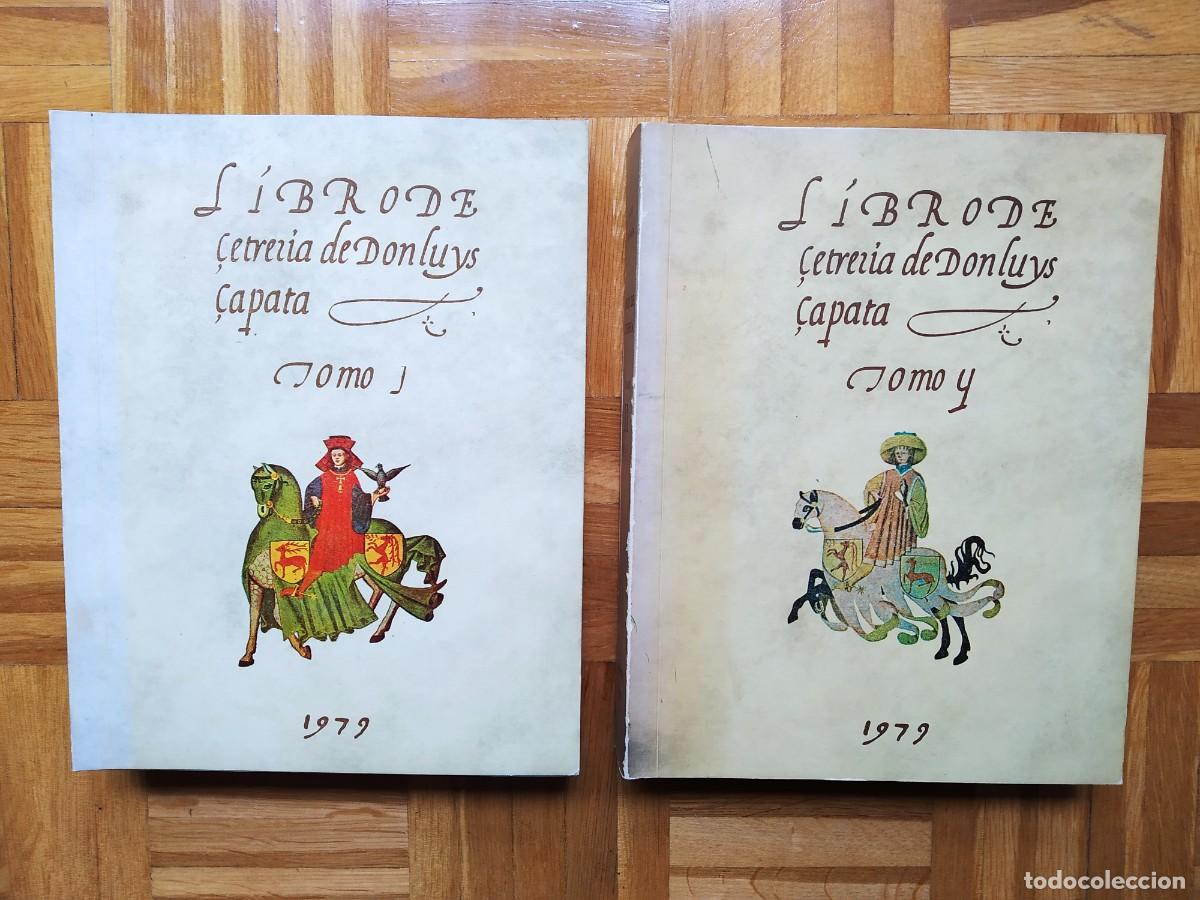 LÍBRO DE
çetreria de Don luys
çapata
Tomo J
1979
LÍBRO DE
çetreria de Don luys
çapata
Tomo y
1979
todocoleccion